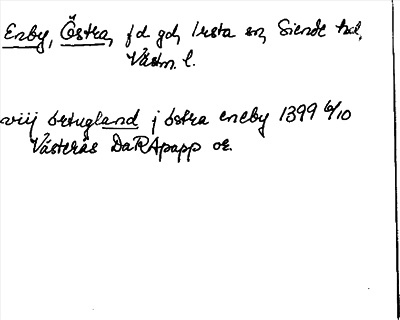 Enby, Östra, f d gd, Irsta sn, Siende hd,
Västm. l.
viij örtugland j östra eneby 1399 6/10
Västerås DaRApapp or.